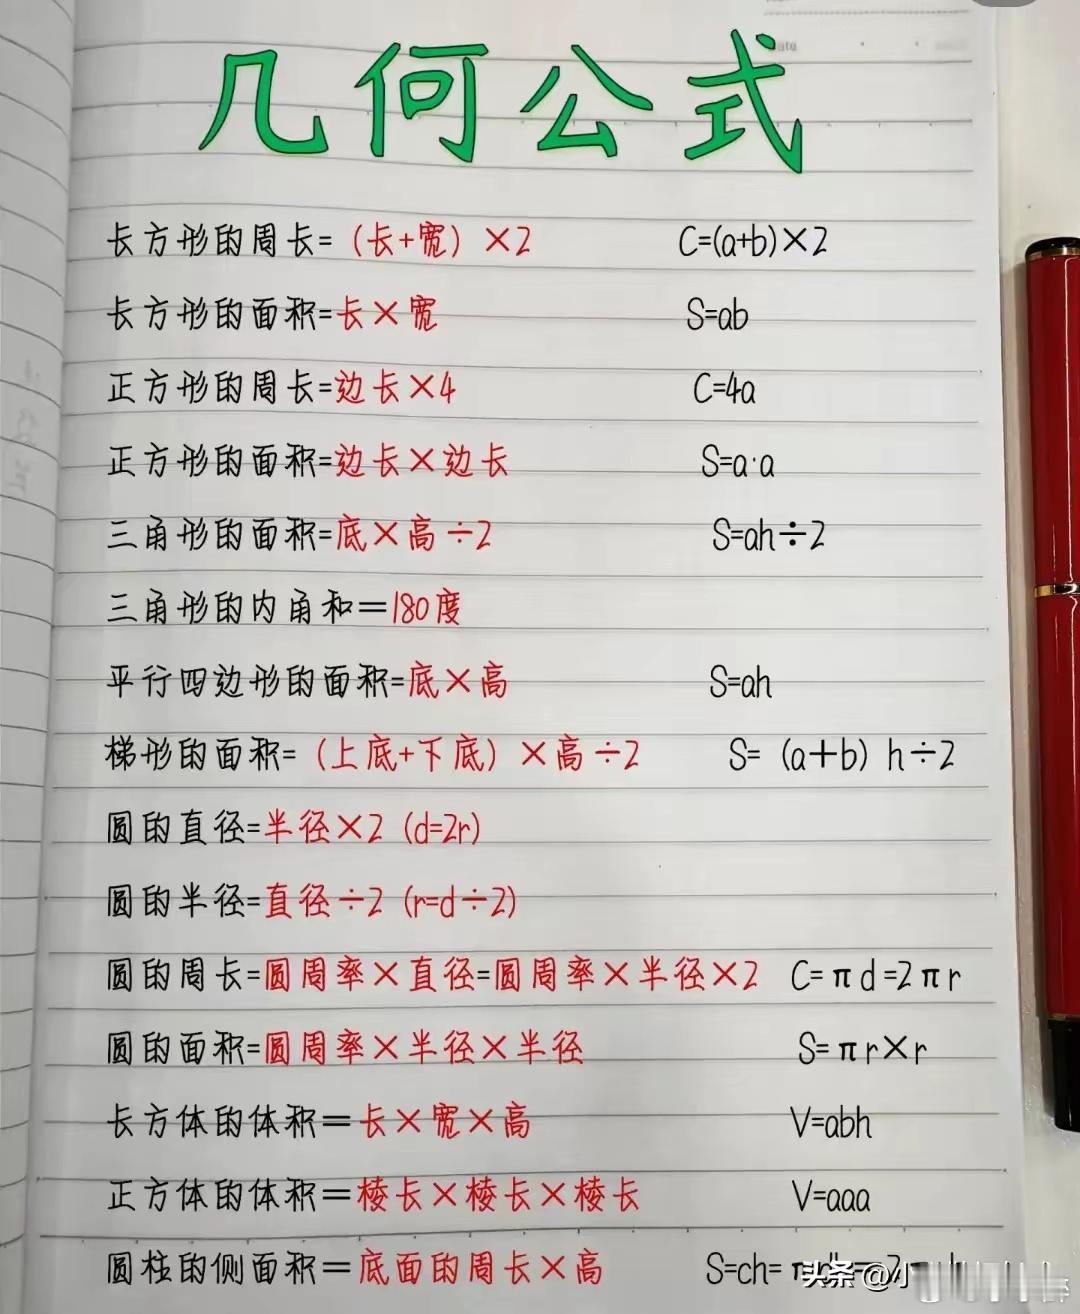 几何公式
长方形的周长=（长+宽）×2 C=(a+b)×2
长方形的面积=长×宽 S=ab
正方形的周长=边长×4 C=4a
正方形的面积=边长×边长 S=a·a
三角形的面积=底×高÷2 S=ah÷2
三角形的内角和=180度
平行四边形的面积=底×高 S=ah
梯形的面积=（上底+下底）×高÷2 S=（a+b）h÷2
圆的直径=半径×2（d=2r）
圆的半径=直径÷2（r=d÷2）
圆的周长=圆周率×直径=圆周率×半径×2 C=πd=2πr
圆的面积=圆周率×半径×半径 S=πr×r
长方体的体积=长×宽×高 V=abh
正方体的体积=棱长×棱长×棱长 V=aaa
圆柱的侧面积=底面的周长×高 S=ch=
头条 @小